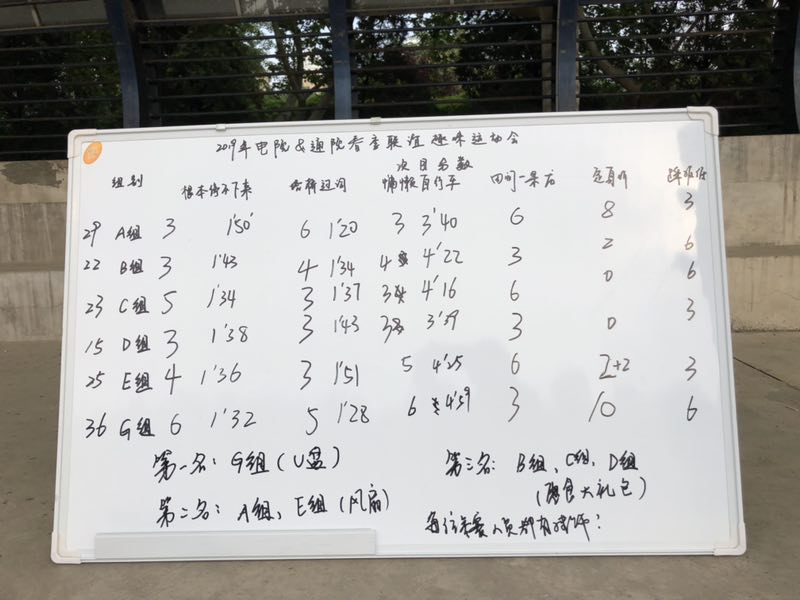 2019年电院&通院春季联谊趣味运动会
项目名数
组别 根本停不下来 慵懒自行车
29 A组 3 1'50' 6 1'20 3 3'40 6 8 3
22 B组 3 1'43 4 1'34 4 4'22 3 2 6
23 C组 5 1'34 3 1'37 3 4'16 6 0 6
15 D组 3 1'38 3 1'43 3 3'39 3 0 3
25 E组 4 1'36 3 1'51 5 4'25 6 2+2 3
36 G组 6 1'32 5 1'28 6 4'39 3 10 6
第一名: G组 (U盘)
第二名: A组、E组 (风扇)
第三名: B组、C组、D组
(零食大礼包)
人员都有